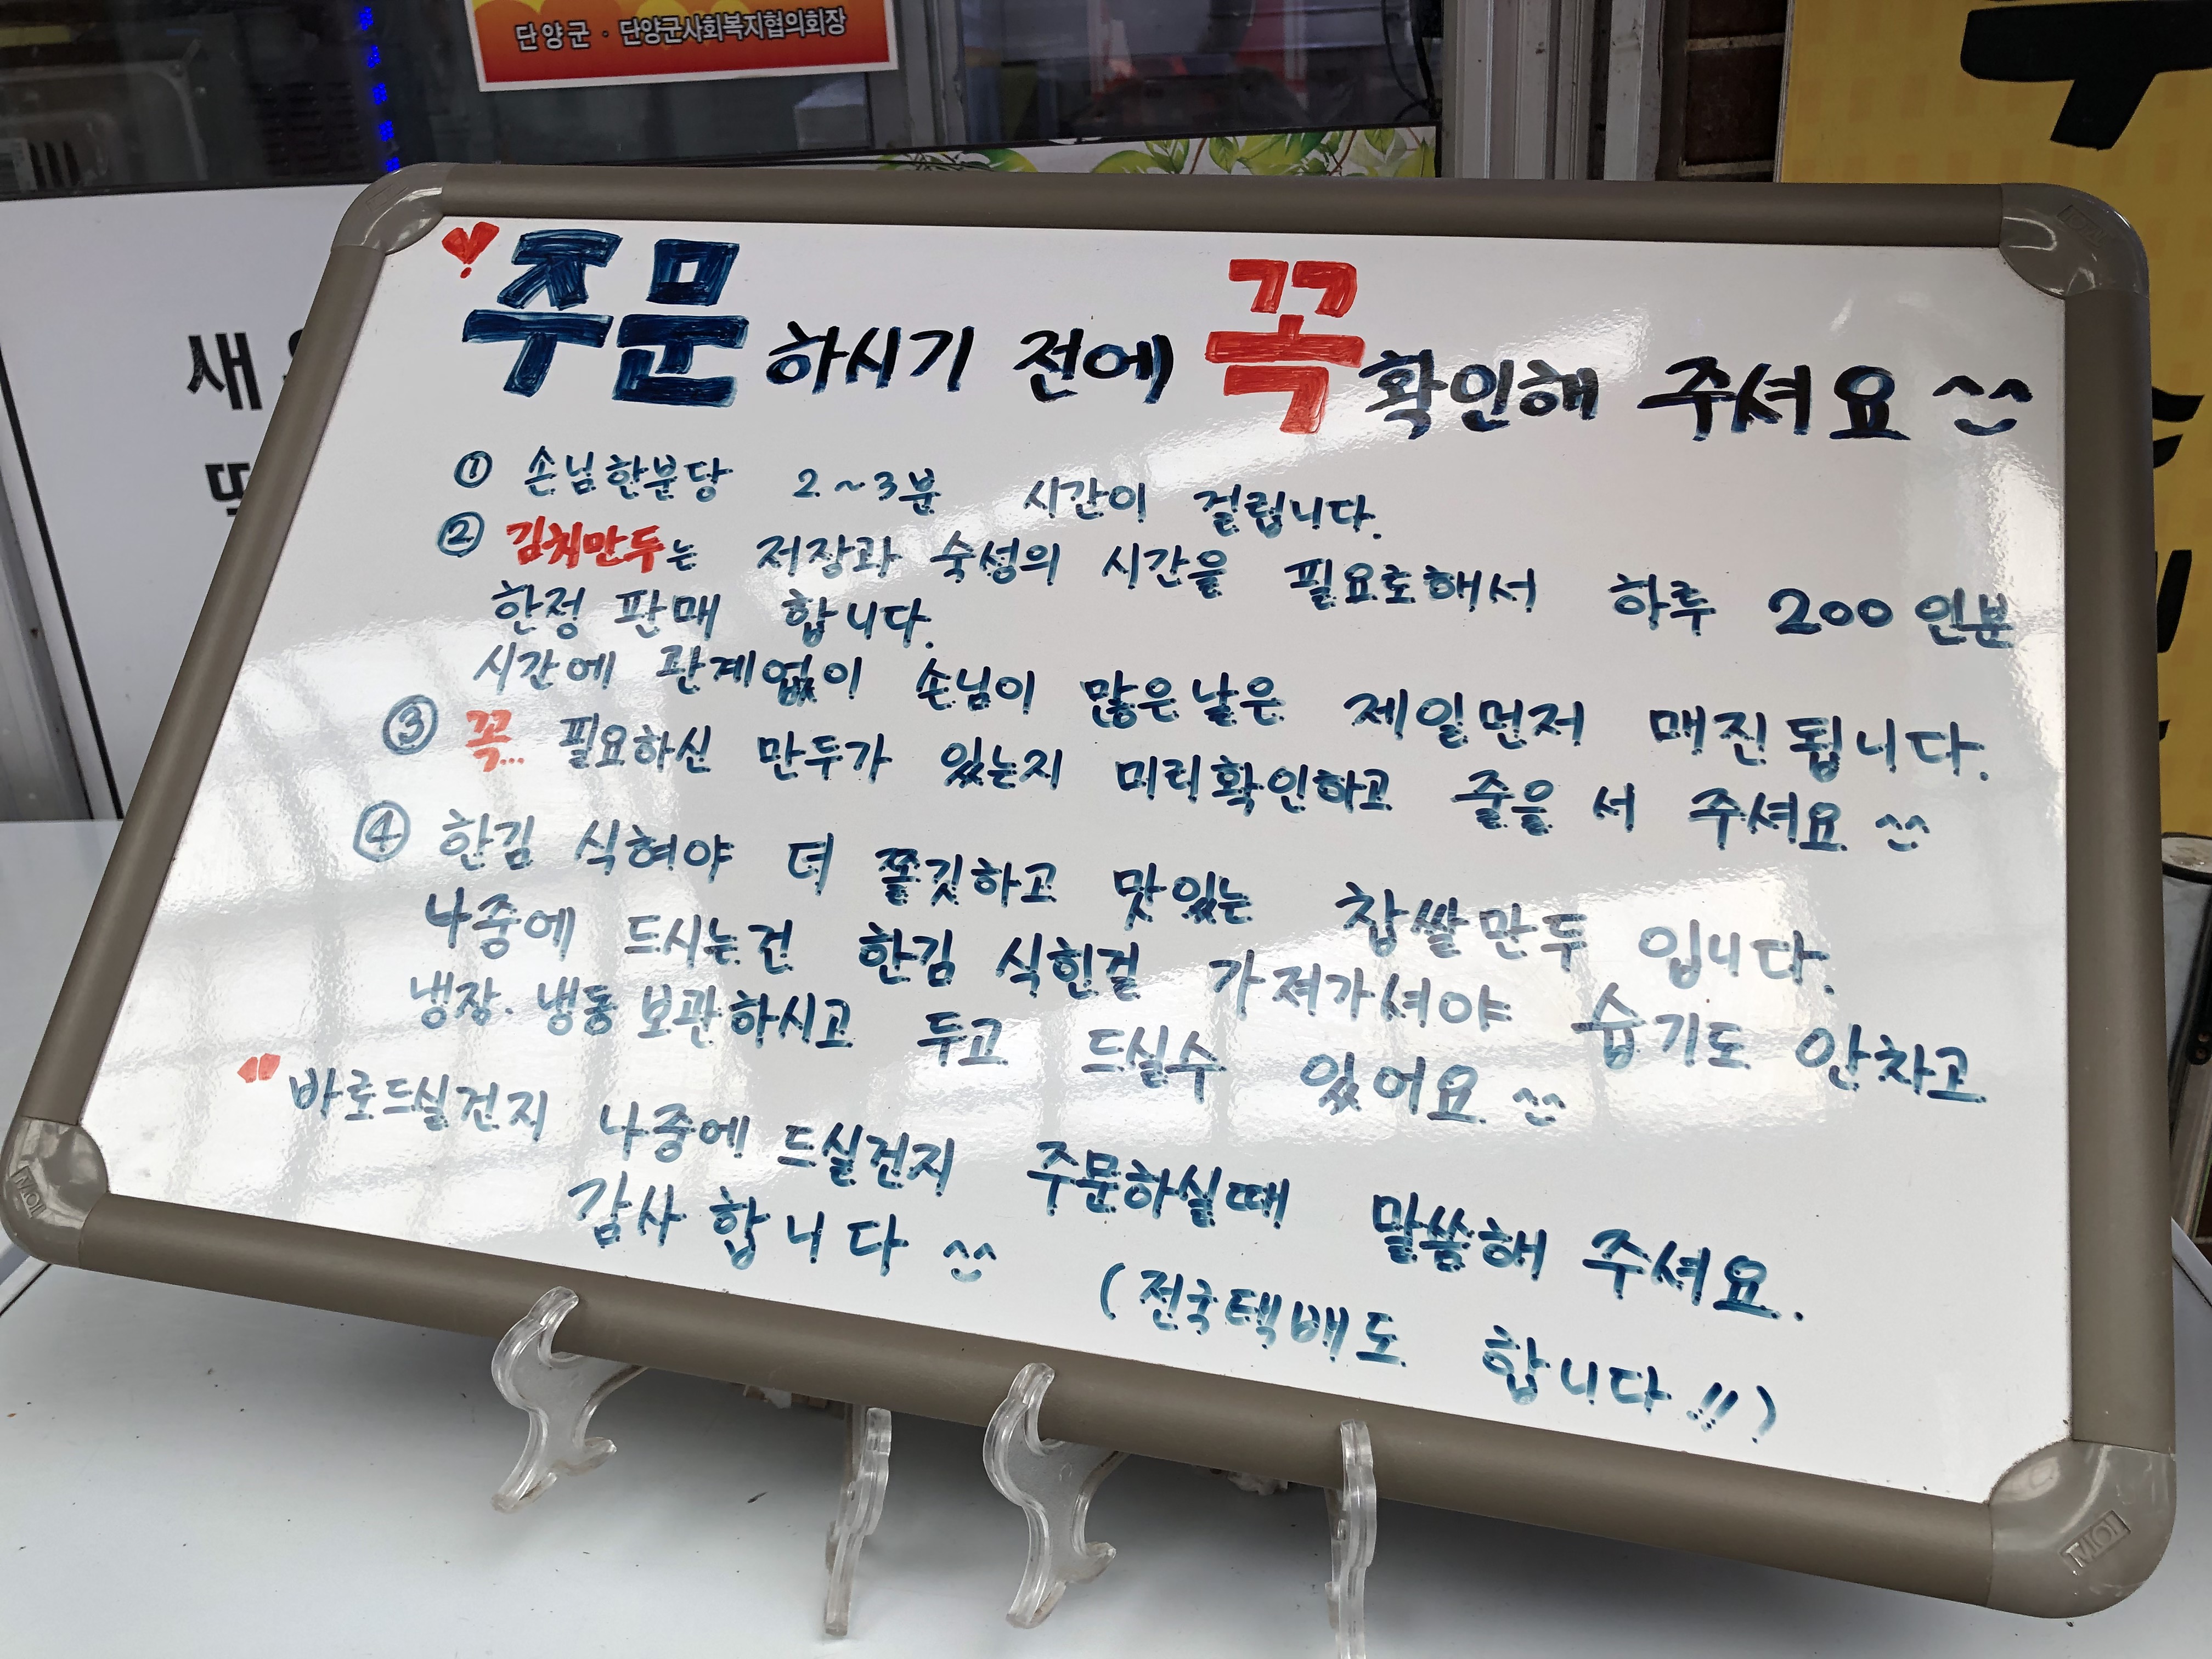 단양군 · 단양군사회복지협의회장
새
주문하시기 전에 꼭 확인해 주셔요 ^^
① 손님한분당 2~3분 시간이 걸립니다.
② 김치만두는 저장과 숙성의 시간을 필요로해서 하루 200인분
한정 판매 합니다.
시간에 관계없이 손님이 많은날은 제일먼저 매진됩니다.
③ 꼭... 필요하신 만두가 있는지 미리확인하고 줄을 서 주셔요 ^^
④ 한김 식혀야 더 쫄깃하고 맛있는 찹쌀만두 입니다.
나중에 드시는건 한김 식힌걸 가져가셔야 습기도 안차고
냉장. 냉동 보관하시고 두고 드실수 있어요 ^^
바로드실건지 나중에 드실건지 주문하실때 말씀해 주셔요.
감사 합니다 ^^
(전국택배도 합니다!!)